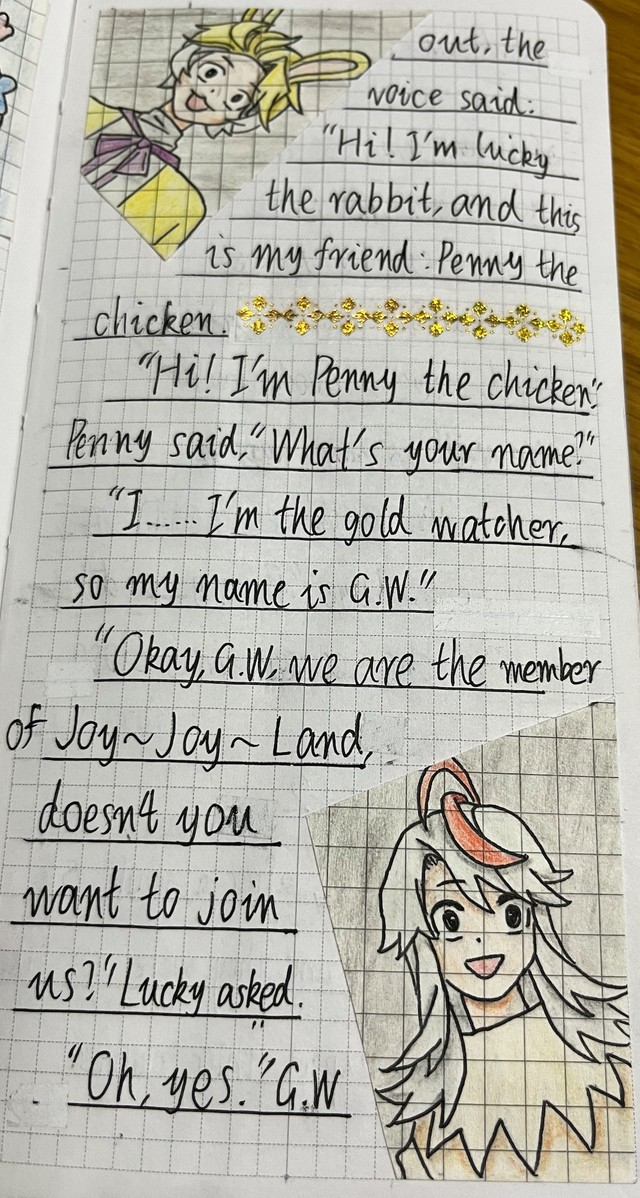 out, the
voice said:
"Hi! I'm lucky
the rabbit, and this
is my friend: Penny the
chicken.
"Hi! I'm Penny the chicken",
Penny said, "What's your name?"
"I...... I'm the gold watcher,
so my name is G.W."
"Okay, G.W, we are the member
of Joy~Joy~Land,
doesn't you
want to join
us?" Lucky asked.
"Oh, yes." G.W